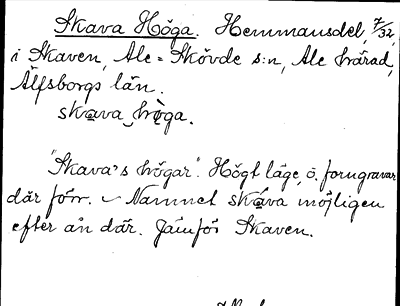 Skava Höga. Hemmansdel, 7/32,
i Skaven, Ale-Skövde s:n, Ale härad,
Älfsborgs län.
skava höga.
"Skava's högar". Högt läge, ö. forngravar
där förr. – Namnet skava möjligen
efter ån där. Jämför Skaven.